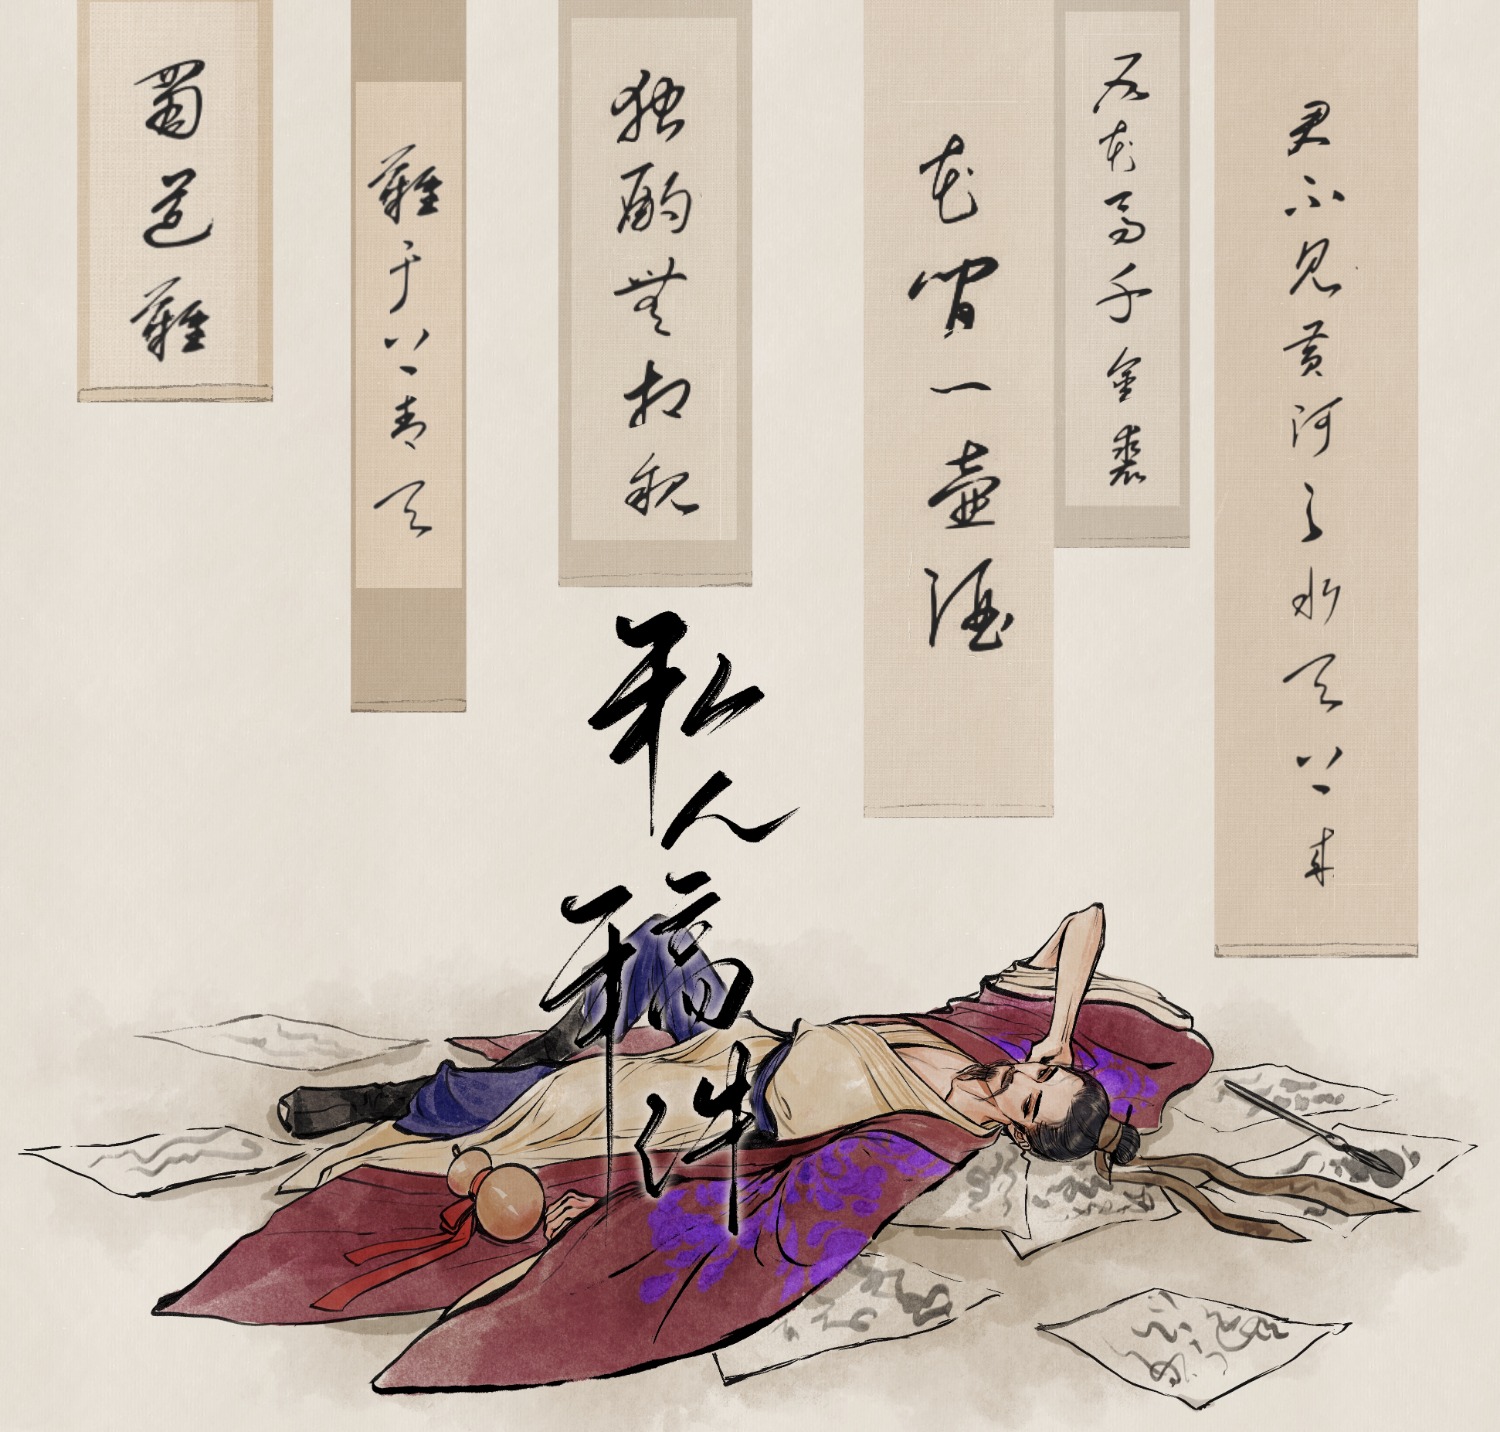 君不见黄河之水天上来
五花馬千金裘
花間一壺酒
独酌無相親
難于上青天
蜀道難
私人稿件